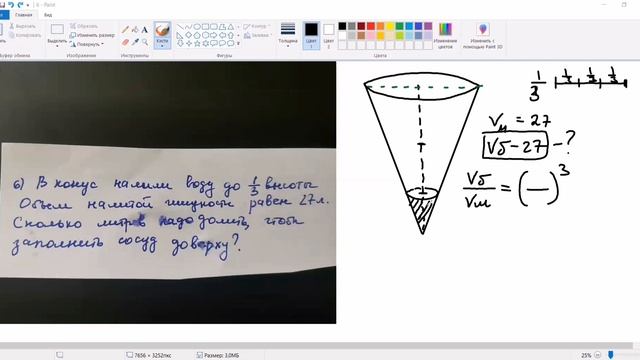 Файл
Главная
Вид
Вырезать
Копировать
Обрезать
Изменить размер
Повернуть
Кисти
Контур
Заливка
Толщина
Цвет 1
Цвет 2
Изменение цветов
Изменить с помощью Paint 3D
Буфер обмена
Изображение
Инструменты
Фигуры
Цвета
б) В конус налили воду до 1/3 высоты
Объем налитой жидкости равен 27л.
Сколько литров надо долить, чтобы
заполнить сосуд доверху?
1/3
1/3 1/3 1/3
Vм = 27
Vб-27 - ?
Vб/Vм = (—)³
7656 × 3252пкс
Размер: 3,0МБ
25%